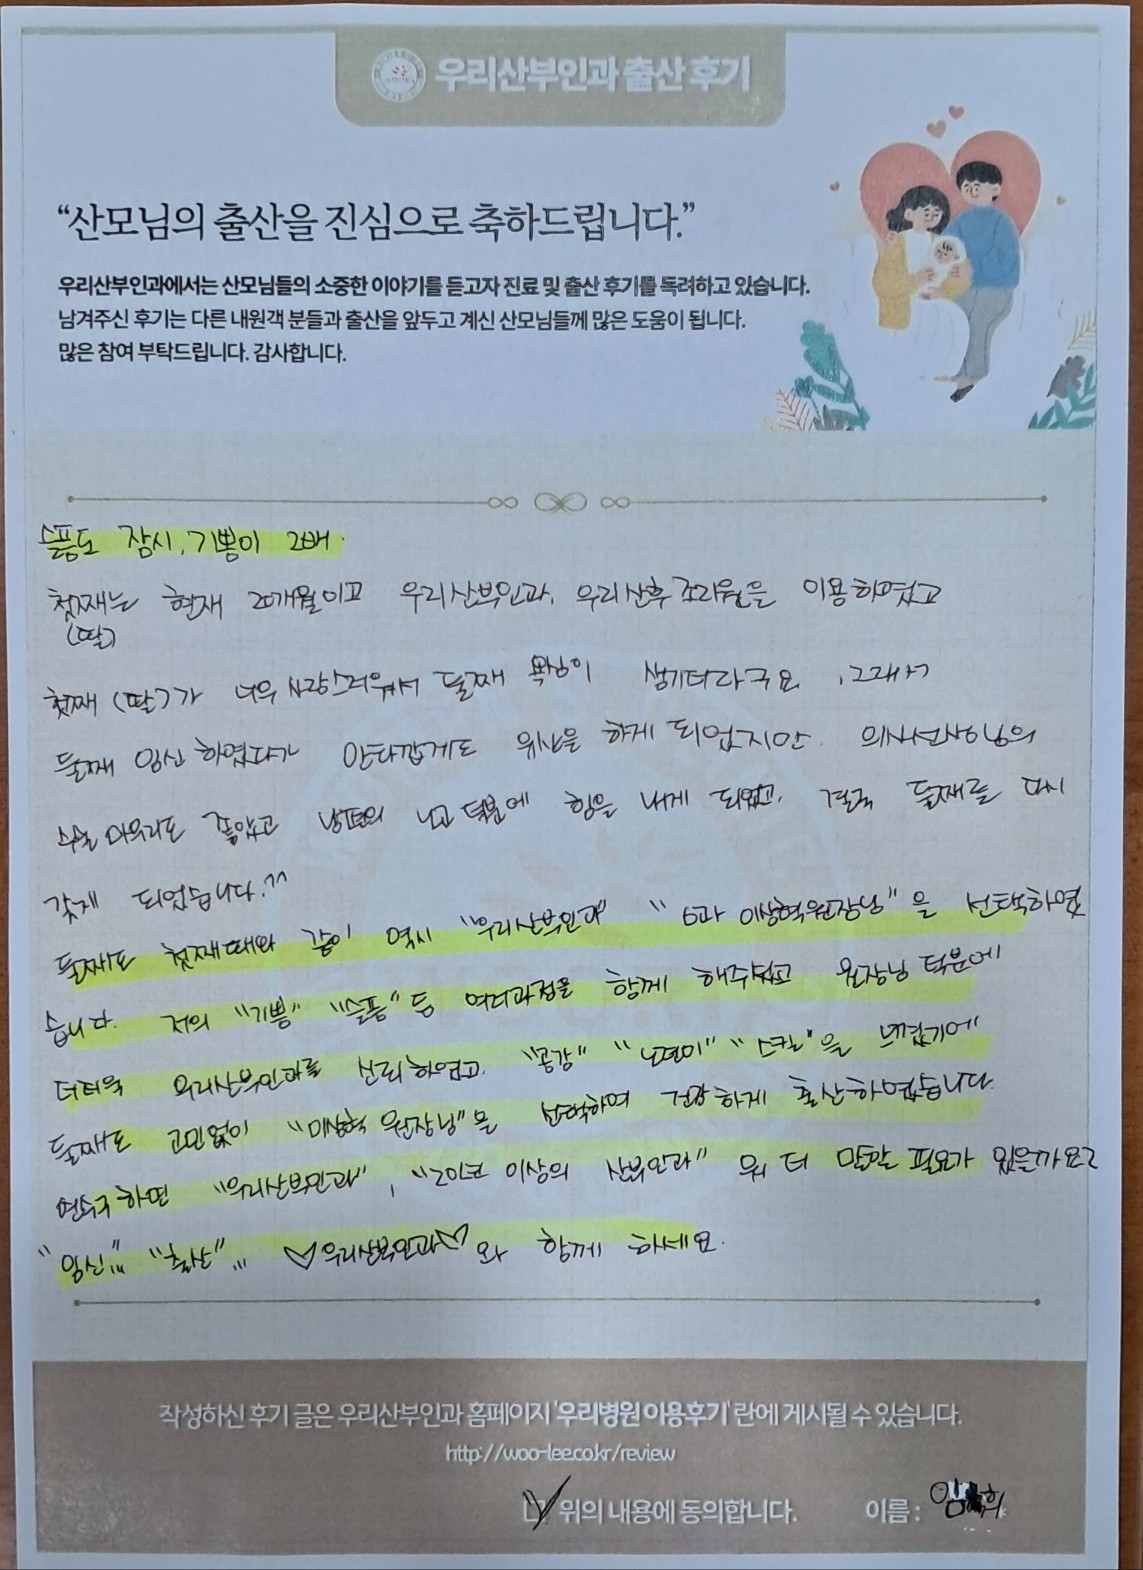 우리산부인과 출산 후기
“산모님의 출산을 진심으로 축하드립니다.”
우리산부인과에서는 산모님들의 소중한 이야기를 듣고자 진료 및 출산 후기를 독려하고 있습니다.
남겨주신 후기는 다른 내원객 분들과 출산을 앞두고 계신 산모님들께 많은 도움이 됩니다.
많은 참여 부탁드립니다. 감사합니다.
슬픔도 잠시, 기쁨이 2배.
첫째는 현재 20개월이고 우리산부인과, 우리산후조리원을 이용하였고
(딸)
첫째 (딸)가 너무 사랑스러워서 둘째 욕심이 생기더라구요. 그래서
둘째 임신하였다가 안타깝게도 유산을 하게 되었지만. 의사선생님의
수술 마무리도 좋았고 남편의 덕분에 힘을 내게 되었고, 결국 둘째를 다시
갖게 되었습니다.^^
둘째도 첫째때와 같이 역시 "우리산부인과" "6과 이상혁원장님"을 선택하였
습니다. 저의 "기쁨" "슬픔" 등 여러과정을 함께 해주셨고 원장님 덕분에
더더욱 우리산부인과를 신뢰하였고, "공감" "스킬"을 느꼈기에
둘째도 고민없이 "이상혁 원장님"을 선택하여 건강하게 출산하였습니다.
연수구하면 "우리산부인과", "2인코 이상의 산부인과" 뭐 더 말할 필요가 있을까요?
"임신"... "출산"... ♡우리산부인과♡와 함께 하세요.
작성하신 후기 글은 우리산부인과 홈페이지 '우리병원 이용후기' 란에 게시될 수 있습니다.
http://woo-lee.co.kr/review
위의 내용에 동의합니다. 이름 :